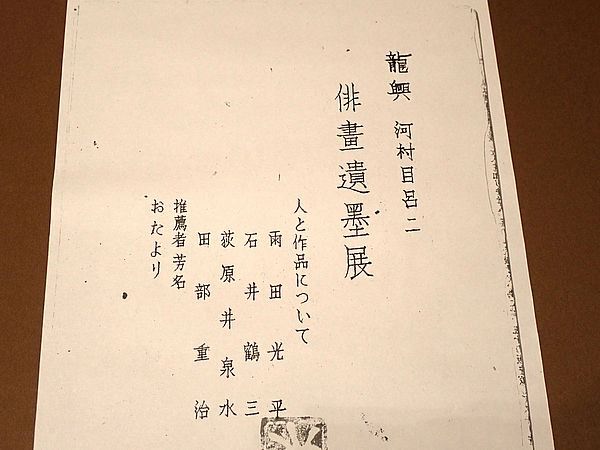 龍興 河村目呂二
俳畫遺墨展
人と作品について
雨田光平
石井鶴三
荻原井泉水
田部重治
推薦者芳名
おたより